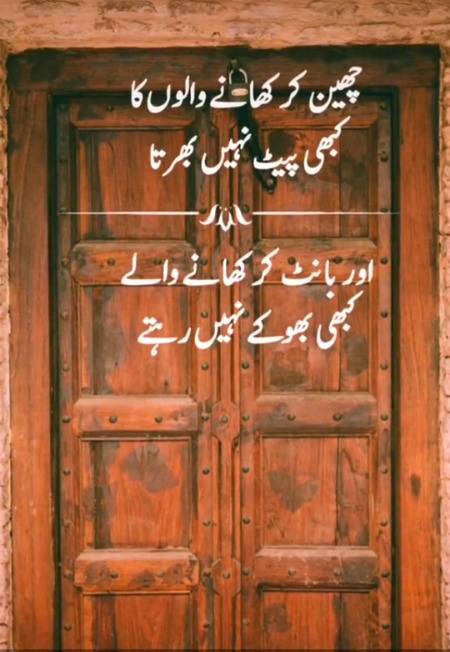 چھین کر کھانے والوں کا
کبھی پیٹ نہیں بھرتا
اور بانٹ کر کھانے والے
کبھی بھوکے نہیں رہتے